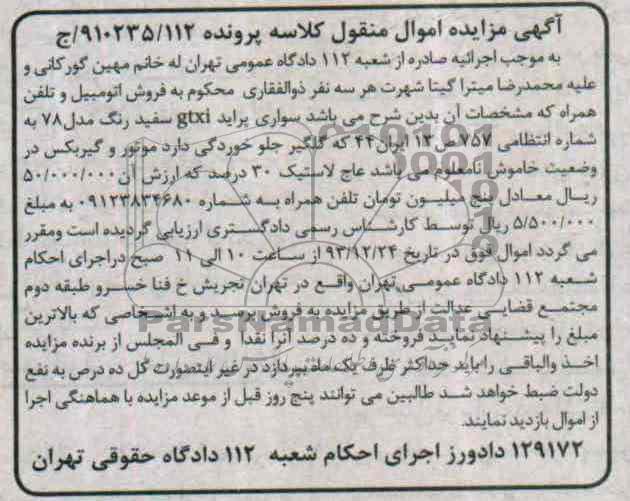 آگهی مزایده اموال منقول کلاسه پرونده ۹۱۰۲۳۵/۱۱۲/ج
به موجب اجرائیه صادره از شعبه ۱۱۲ دادگاه عمومی تهران له خانم مهین گورکانی و
علیه محمدرضا میترا گیتا شهرت هر سه نفر ذوالفقاری محکوم به فروش اتومبیل و تلفن
همراه که مشخصات آن بدین شرح می باشد سواری پراید gtxi سفید رنگ مدل۷۸ به
شماره انتظامی ۷۵۷ص۱۳ ایران۴۴ که گلگیر جلو خوردگی دارد موتور و گیربکس در
وضعیت خاموش نامعلوم می باشد عاج لاستیک ۳۰ درصد که ارزش آن ۵۰/۰۰۰/۰۰۰
ریال معادل پنج میلیون تومان تلفن همراه به شماره ۰۹۱۲۳۸۳۴۶۸۰ به مبلغ
۵/۵۰۰/۰۰۰ ریال توسط کارشناس رسمی دادگستری ارزیابی گردیده است ومقرر
می گردد اموال فوق در تاریخ ۹۳/۱۲/۲۴ از ساعت ۱۰ الی ۱۱ صبح دراجرای احکام
شعبه ۱۱۲ دادگاه عمومی تهران واقع در تهران تجریش خ فنا خسرو طبقه دوم
مجتمع قضایی عدالت از طریق مزایده به فروش برسد و به اشخاصی که بالاترین
مبلغ را پیشنهاد نماید فروخته و ده درصد آنرا نقدا و فی المجلس از برنده مزایده
اخذ والباقی را باید حداکثر ظرف یک ماه بپردازد در غیر اینصورت کل ده درص به نفع
دولت ضبط خواهد شد طالبین می توانند پنج روز قبل از موعد مزایده با هماهنگی اجرا
از اموال بازدید نمایند.
۱۲۹۱۷۲ دادورز اجرای احکام شعبه ۱۱۲ دادگاه حقوقی تهران
ParsNamadData